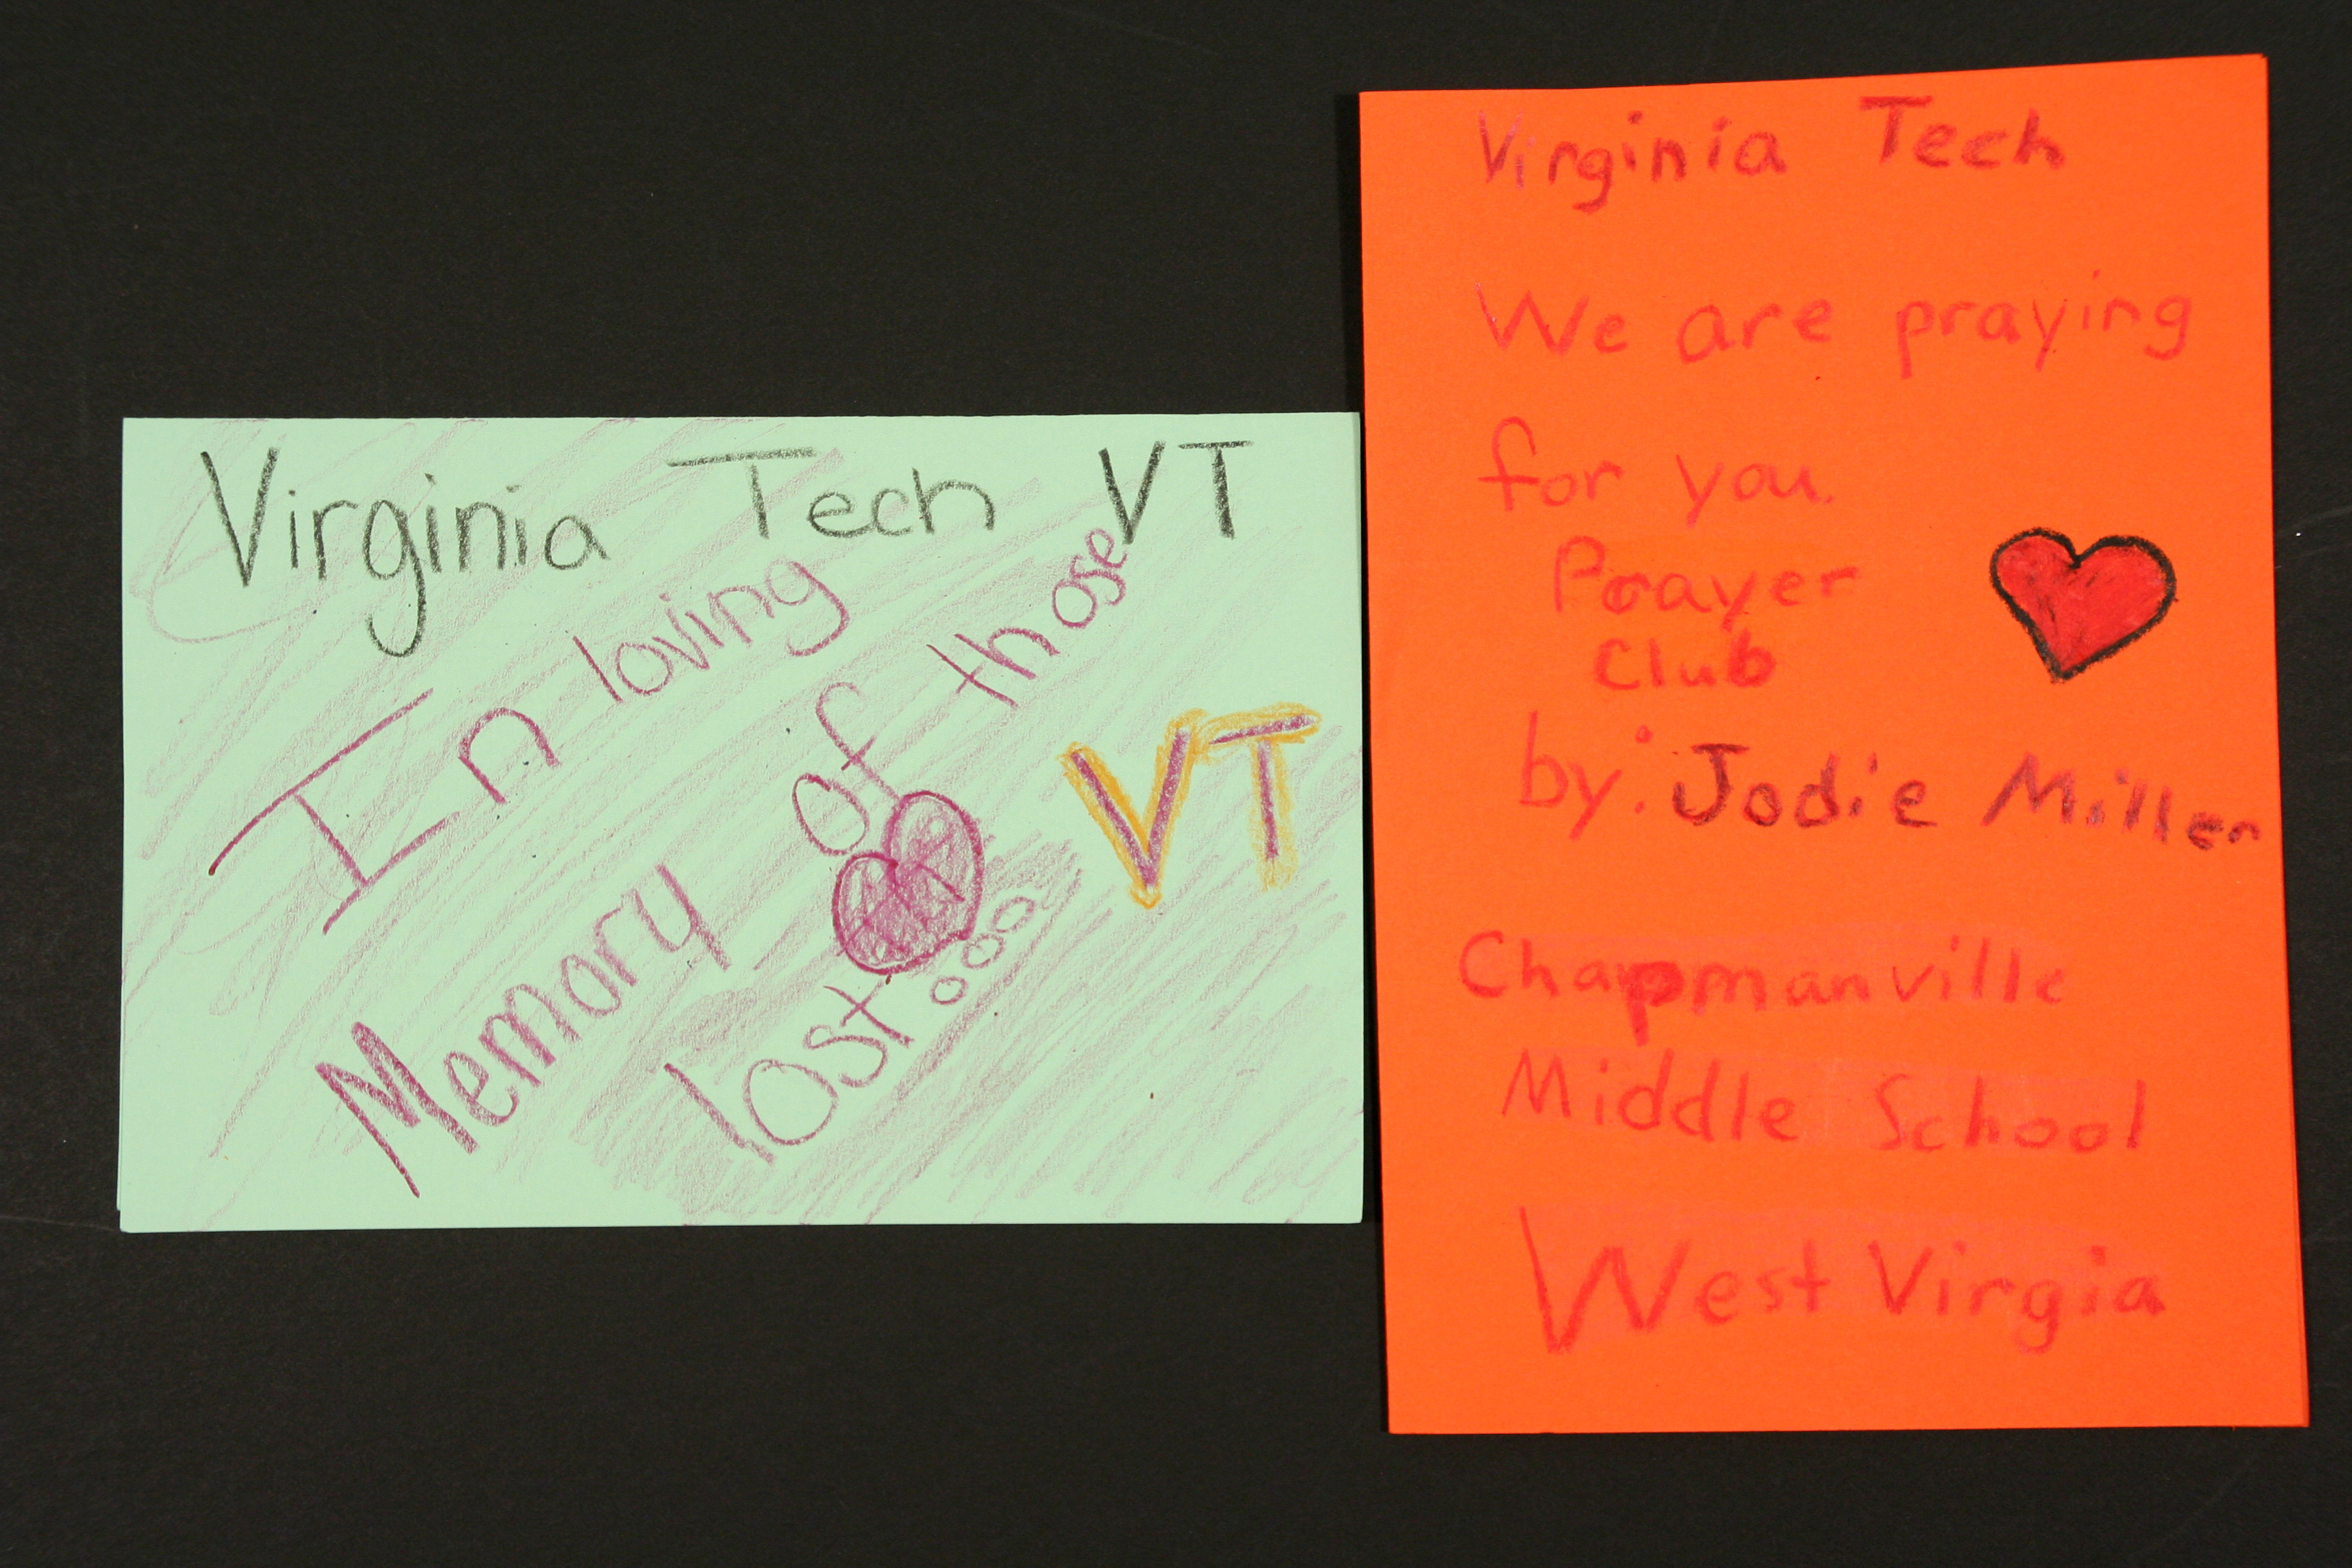 Virginia Tech VT
In loving
Memory of those
lost....
VT
Virginia Tech
We are praying
for you.
Prayer
Club
by: Jodie Miller
Chapmanville
Middle School
West Virgia